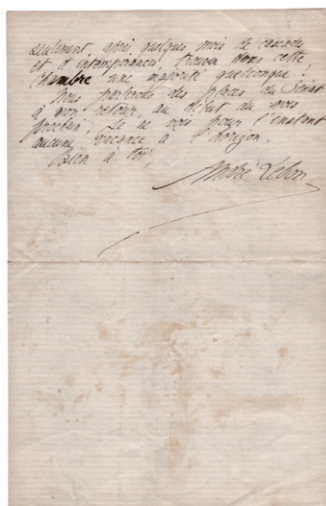 seulement, après quelques mois de cascades
et d'intempérances, trouver dans cette
chambre une majorité quelconque !
Nous parlerons des places du Sénat
à mon retour, au début du mois
prochain. Je ne vois pour l'instant
aucune vacance à l'horizon.
Bien à toi
André Lebon